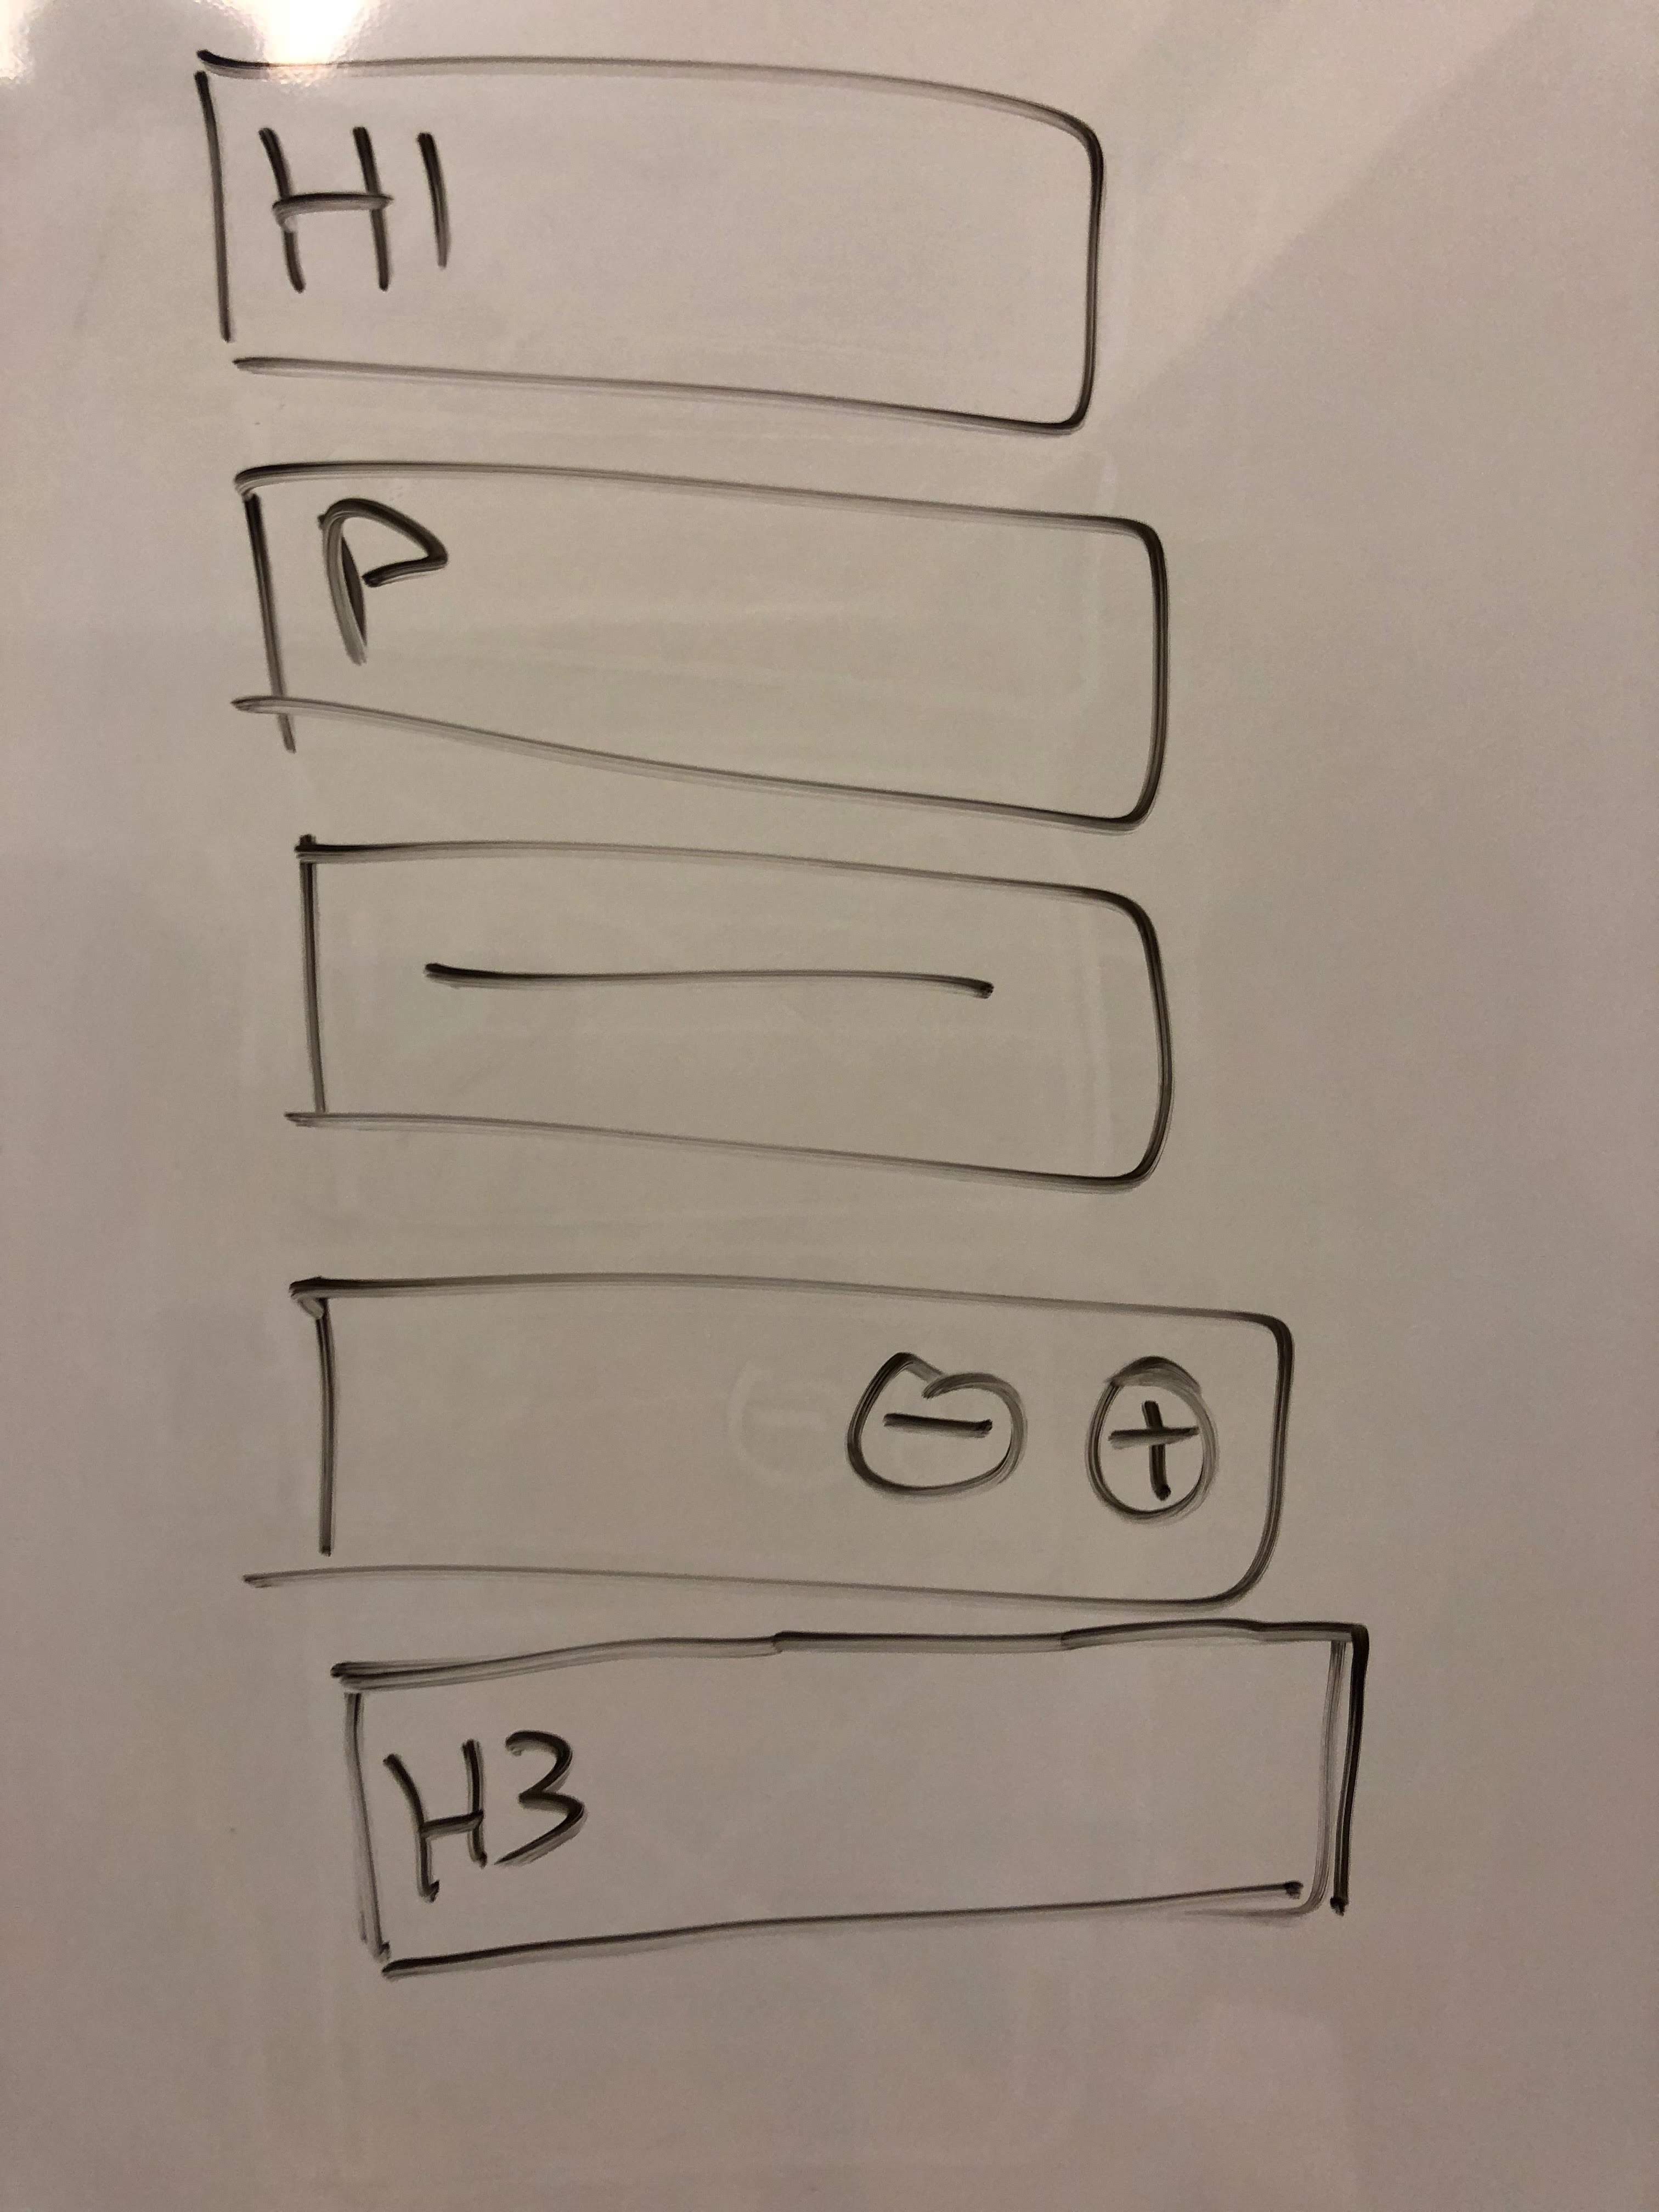 H1
P
—
- +
H3